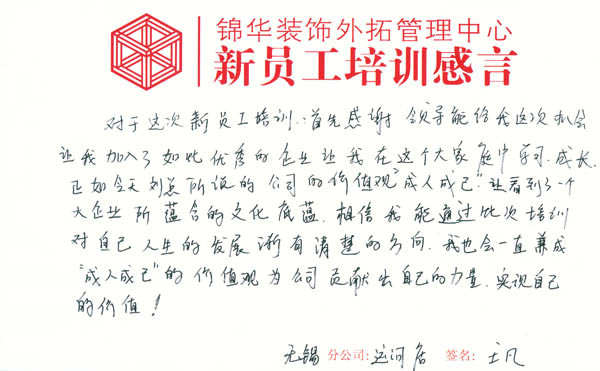 锦华装饰外拓管理中心
新员工培训感言
对于这次新员工培训,首先感谢领导能给我这次机会
让我加入了如此优秀的企业让我在这个大家庭中学习、成长.
正如今天刘总所说的公司的价值观"成人成己".让看到了一个
大企业所蕴含的文化底蕴.相信我能通过此次培训
对自己人生的发展渐有清楚的方向.我也会一直兼成
"成人成己"的价值观为公司贡献出自己的力量.实现自己
的价值!
无锡 分公司:运河店 签名:王凡